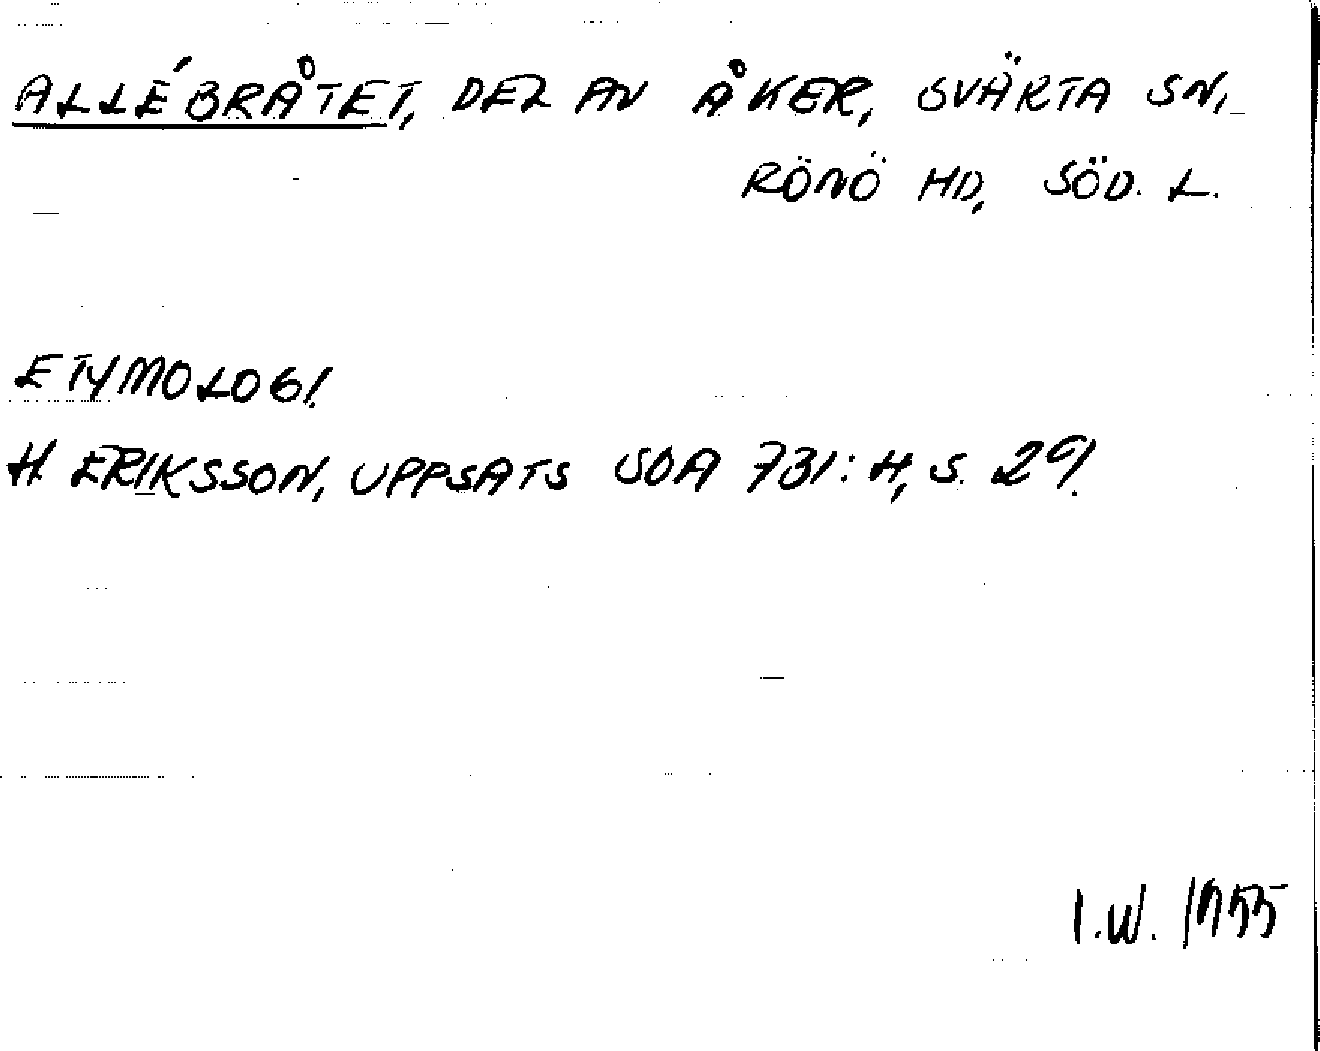 ALLÉBRÅTET, DEL AV ÅKER, SVÄRTA SN,
RÖNÖ HD, SÖD. L.
ETYMOLOGI.
H. ERIKSSON, UPPSATS SOA 731:H, S. 29.
I.W. 1955